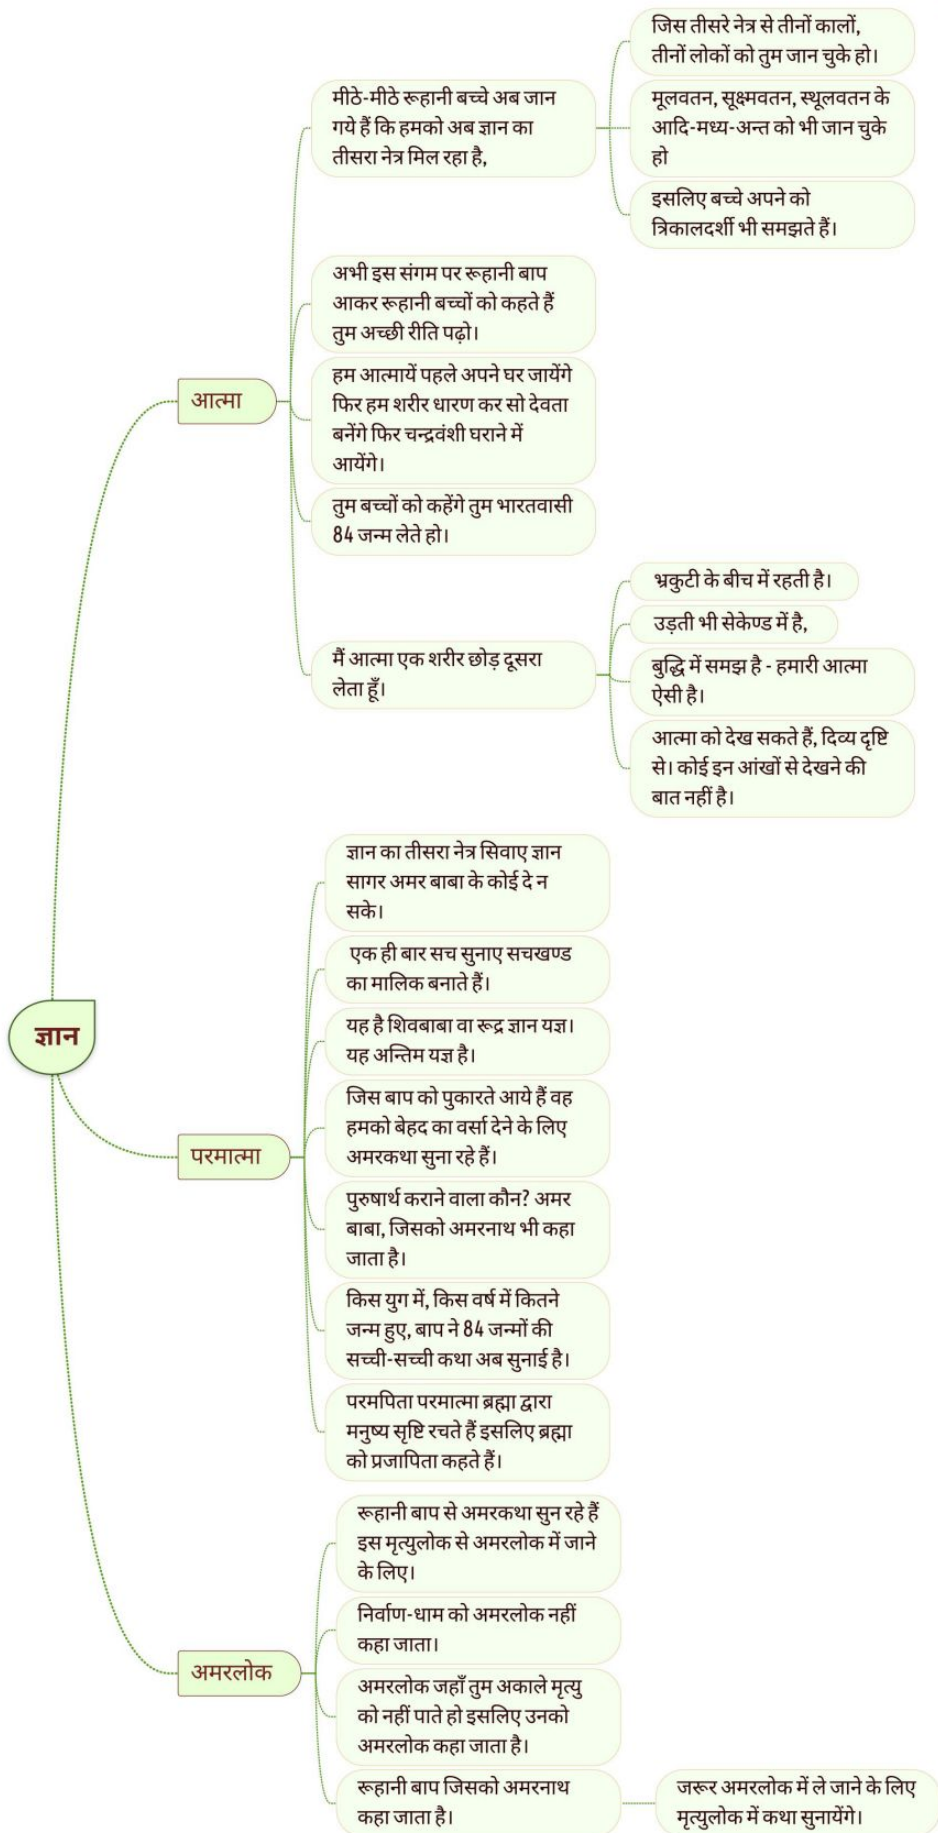 ज्ञान
आत्मा
मीठे-मीठे रूहानी बच्चे अब जान
गये हैं कि हमको अब ज्ञान का
तीसरा नेत्र मिल रहा है,
जिस तीसरे नेत्र से तीनों कालों,
तीनों लोकों को तुम जान चुके हो।
मूलवतन, सूक्ष्मवतन, स्थूलवतन के
आदि-मध्य-अन्त को भी जान चुके
हो
इसलिए बच्चे अपने को
त्रिकालदर्शी भी समझते हैं।
अभी इस संगम पर रूहानी बाप
आकर रूहानी बच्चों को कहते हैं
तुम अच्छी रीति पढ़ो।
हम आत्मायें पहले अपने घर जायेंगे
फिर हम शरीर धारण कर सो देवता
बनेंगे फिर चन्द्रवंशी घराने में
आयेंगे।
तुम बच्चों को कहेंगे तुम भारतवासी
84 जन्म लेते हो।
मैं आत्मा एक शरीर छोड़ दूसरा
लेता हूँ।
भ्रकुटी के बीच में रहती है।
उड़ती भी सेकेण्ड में है,
बुद्धि में समझ है - हमारी आत्मा
ऐसी है।
आत्मा को देख सकते हैं, दिव्य दृष्टि
से। कोई इन आंखों से देखने की
बात नहीं है।
परमात्मा
ज्ञान का तीसरा नेत्र सिवाए ज्ञान
सागर अमर बाबा के कोई दे न
सके।
एक ही बार सच सुनाए सचखण्ड
का मालिक बनाते हैं।
यह है शिवबाबा वा रूद्र ज्ञान यज्ञ।
यह अन्तिम यज्ञ है।
जिस बाप को पुकारते आये हैं वह
हमको बेहद का वर्सा देने के लिए
अमरकथा सुना रहे हैं।
पुरुषार्थ कराने वाला कौन? अमर
बाबा, जिसको अमरनाथ भी कहा
जाता है।
किस युग में, किस वर्ष में कितने
जन्म हुए, बाप ने 84 जन्मों की
सच्ची-सच्ची कथा अब सुनाई है।
परमपिता परमात्मा ब्रह्मा द्वारा
मनुष्य सृष्टि रचते हैं इसलिए ब्रह्मा
को प्रजापिता कहते हैं।
अमरलोक
रूहानी बाप से अमरकथा सुन रहे हैं
इस मृत्युलोक से अमरलोक में जाने
के लिए।
निर्वाण-धाम को अमरलोक नहीं
कहा जाता।
अमरलोक जहाँ तुम अकाले मृत्यु
को नहीं पाते हो इसलिए उनको
अमरलोक कहा जाता है।
रूहानी बाप जिसको अमरनाथ
कहा जाता है।
जरूर अमरलोक में ले जाने के लिए
मृत्युलोक में कथा सुनायेंगे।